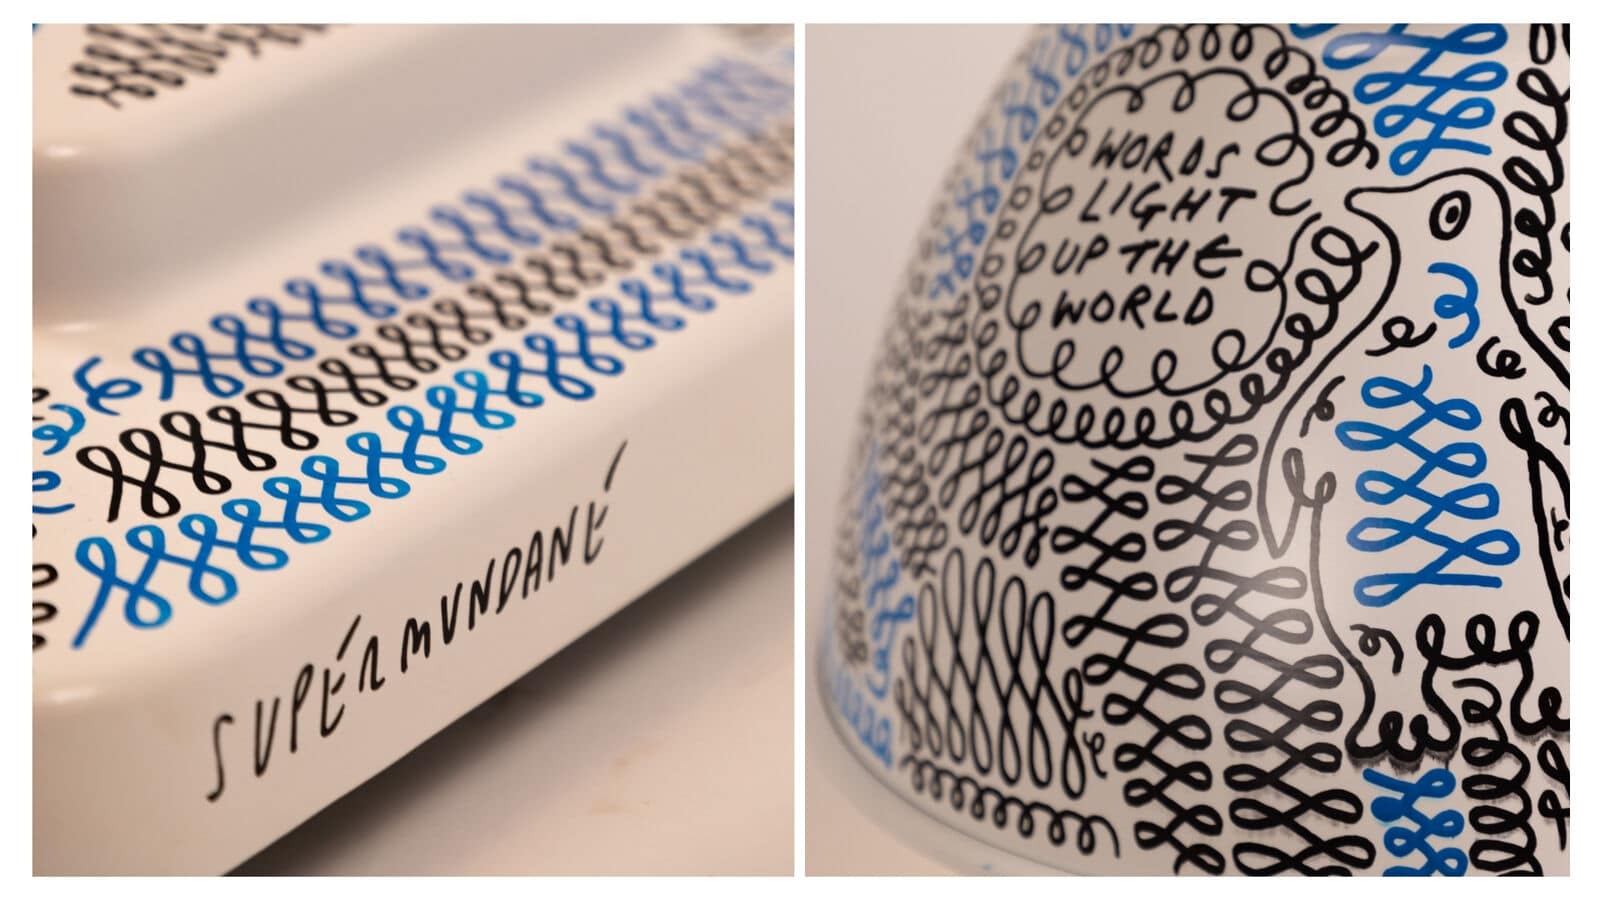 SUPERMUNDANE
WORDS
LIGHT
UP THE
WORLD